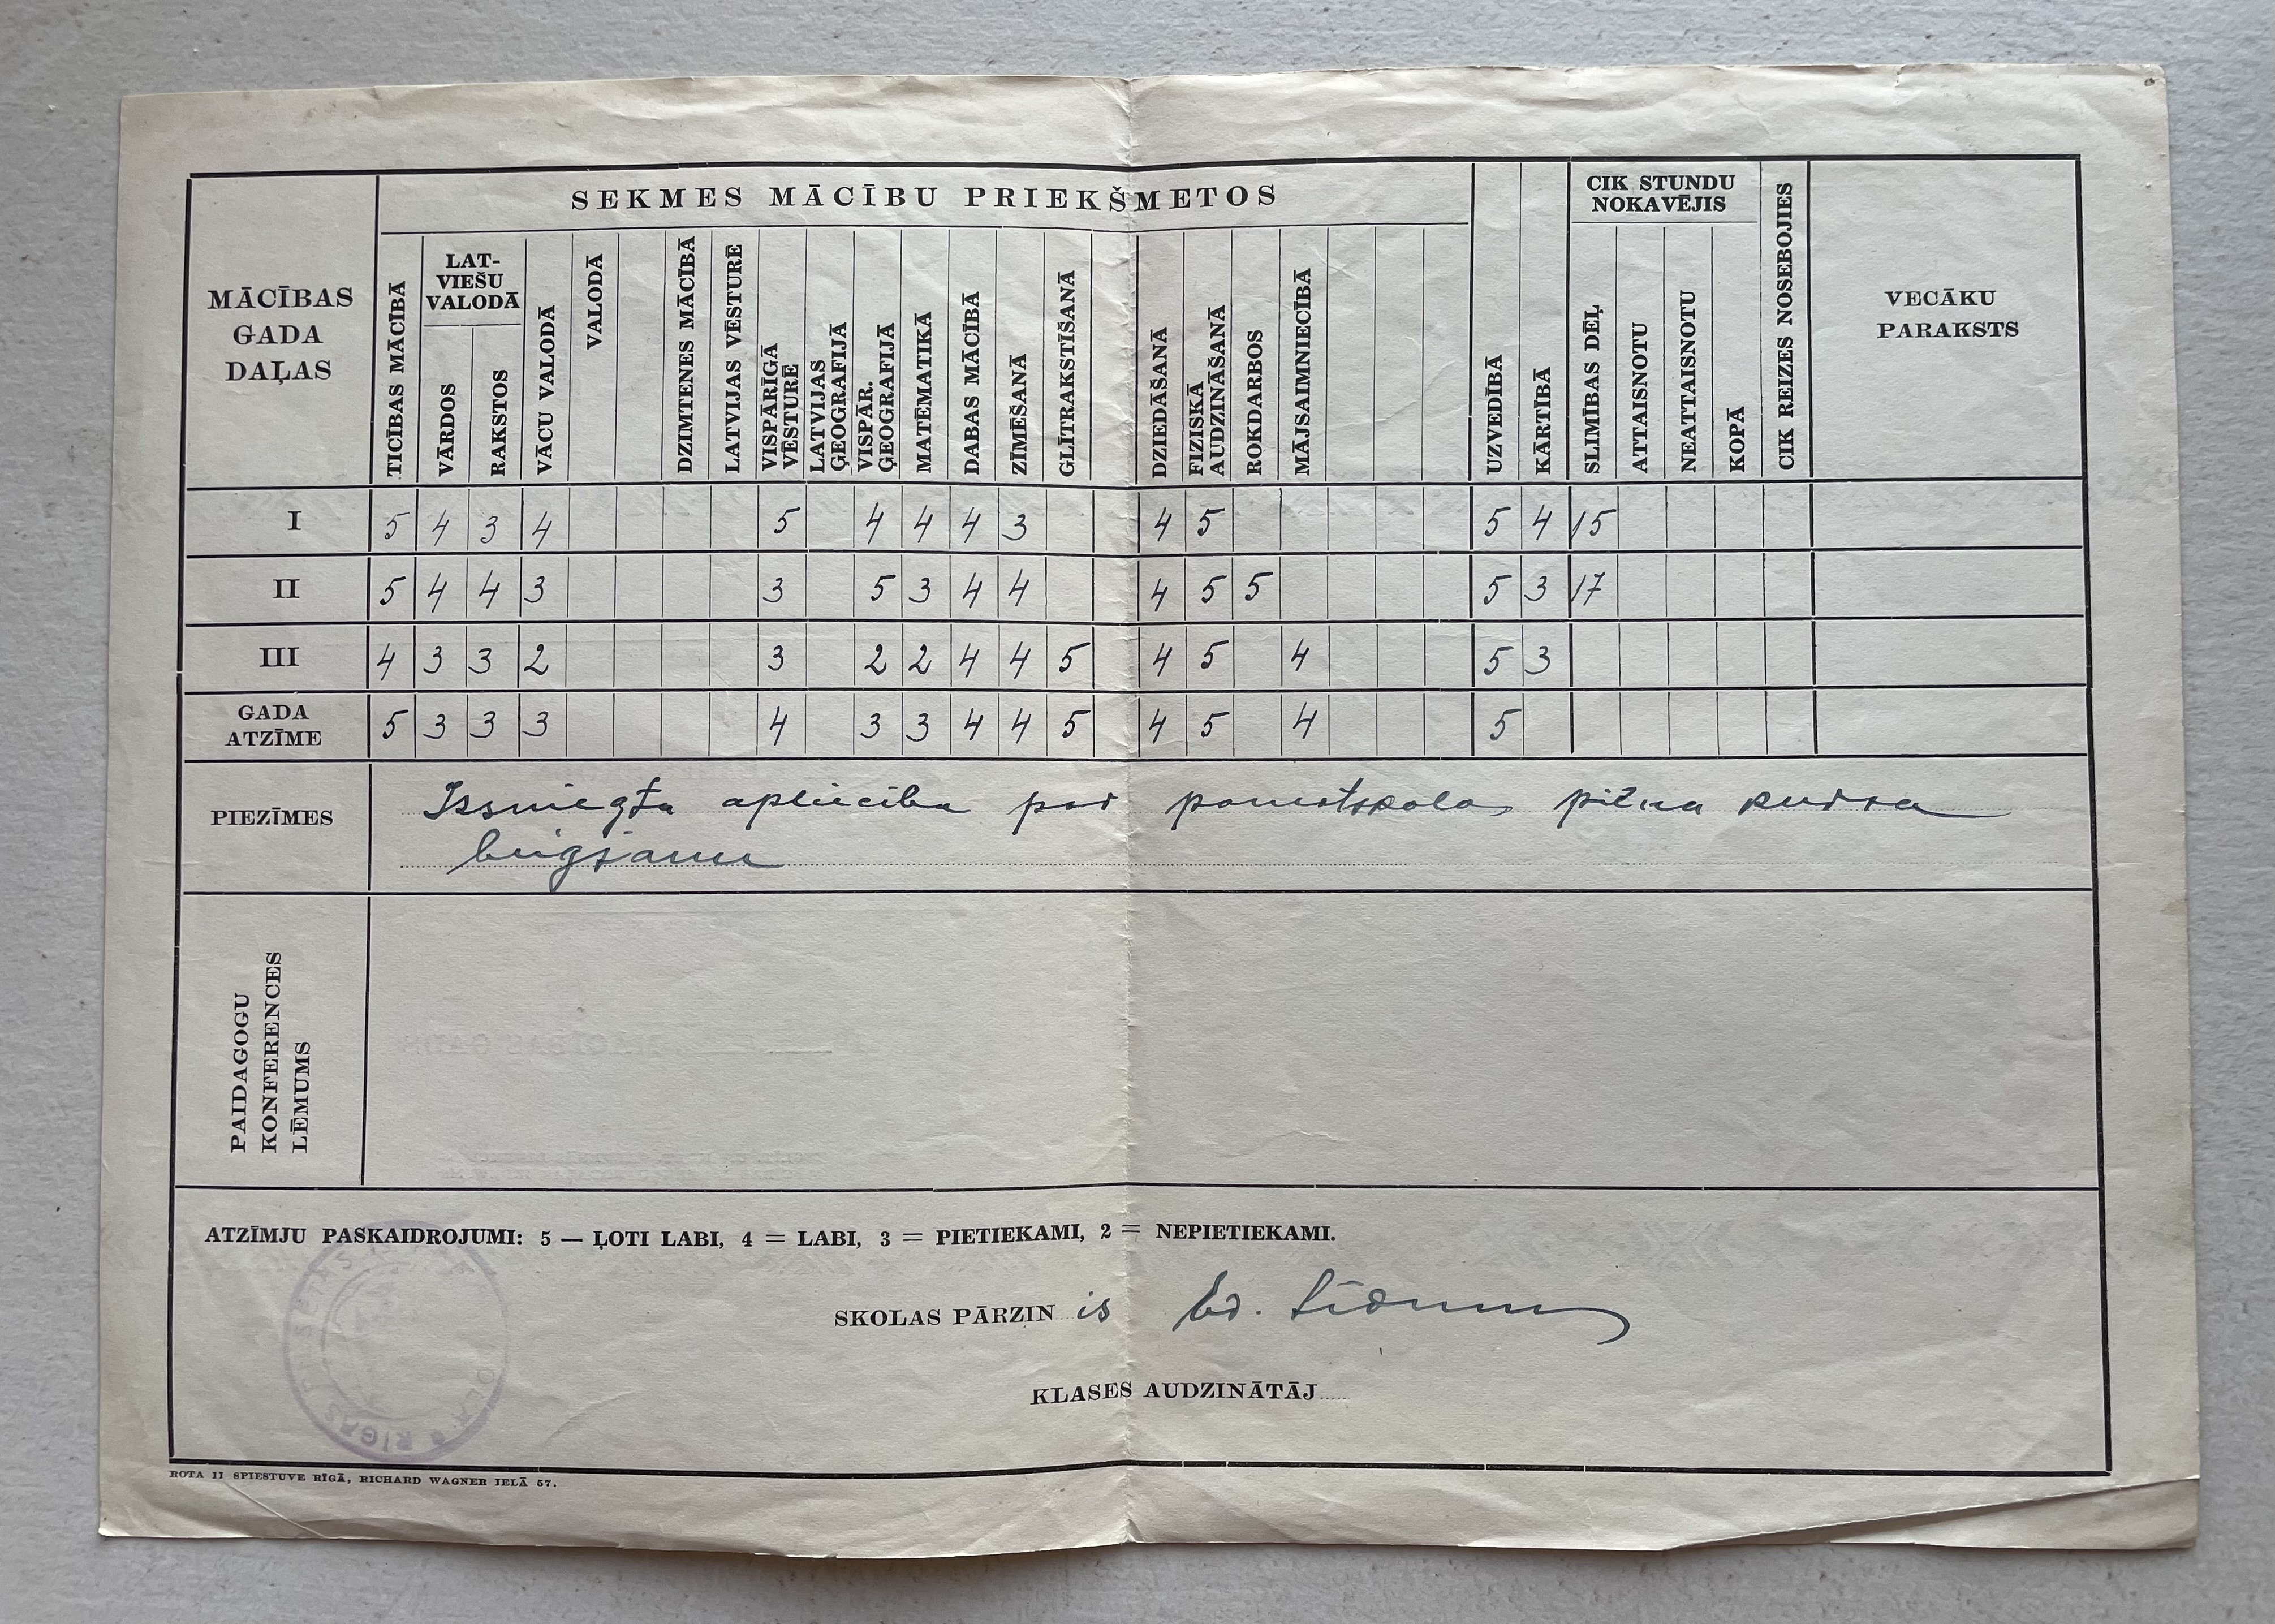 SEKMES MĀCĪBU PRIEKŠMETOS
CIK STUNDU
NOKAVĒJIS
MĀCĪBAS
GADA
DAĻAS
TICĪBAS MĀCĪBĀ
LAT-
VIEŠU
VALODĀ
VĀRDOS
RAKSTOS
VĀCU VALODĀ
VALODĀ
DZIMTENES MĀCĪBĀ
LATVIJAS VĒSTURĒ
VISPĀRĪGĀ
VĒSTURĒ
LATVIJAS
ĢEOGRAFIJĀ
VISPĀR.
ĢEOGRAFIJĀ
MATĒMATIKĀ
DABAS MĀCĪBĀ
ZĪMĒŠANĀ
GLĪTRAKSTĪŠANĀ
DZIEDĀŠANĀ
FIZISKĀ
AUDZINĀŠANĀ
ROKDARBOS
MĀJSAIMNIECĪBĀ
UZVEDĪBĀ
KĀRTĪBĀ
SLIMĪBAS DĒĻ
ATTAISNOTU
NEATTAISNOTU
KOPĀ
CIK REIZES NOSEBOJIES
VECĀKU
PARAKSTS
I 5 4 3 4 5 4 4 4 3 4 5 5 4 15
II 5 4 4 3 3 5 3 4 4 4 5 5 5 3 17
III 4 3 3 2 3 2 2 4 4 5 4 5 4 5 3
GADA
ATZĪME 5 3 3 3 4 3 3 4 4 5 4 5 4 5
PIEZĪMES
Izsniegta apliecība par pamatskolas pilna kursa
beigšanu
PAIDAGOGU
KONFERENCES
LĒMUMS
ATZĪMJU PASKAIDROJUMI: 5 — ĻOTI LABI, 4 = LABI, 3 = PIETIEKAMI, 2 = NEPIETIEKAMI.
SKOLAS PĀRZIN is Ed.
KLASES AUDZINĀTĀJ
RĪGAS
ROTA II SPIESTUVE RĪGĀ, RICHARD WAGNER IELĀ 57.